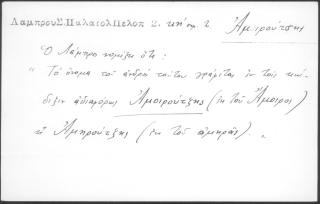 ΛαμπρουΣ.ΠαλαιολΠελοπ 2. κη' σημ. 2. Ἀμιρούτσης
Ὁ Λάμπρος νομίζει ὅτι:
" Τὸ ὄνομα τοῦ ἀνδρὸς τούτου γράφεται ἐν τοῖς κώ-
διξιν ἀδιαφόρως Ἀμοιρούτζης (ἐκ τοῦ Ἄμοιρος)
ἢ Ἀμηρούτζης (ἐκ τοῦ ἀμηρᾶς). "